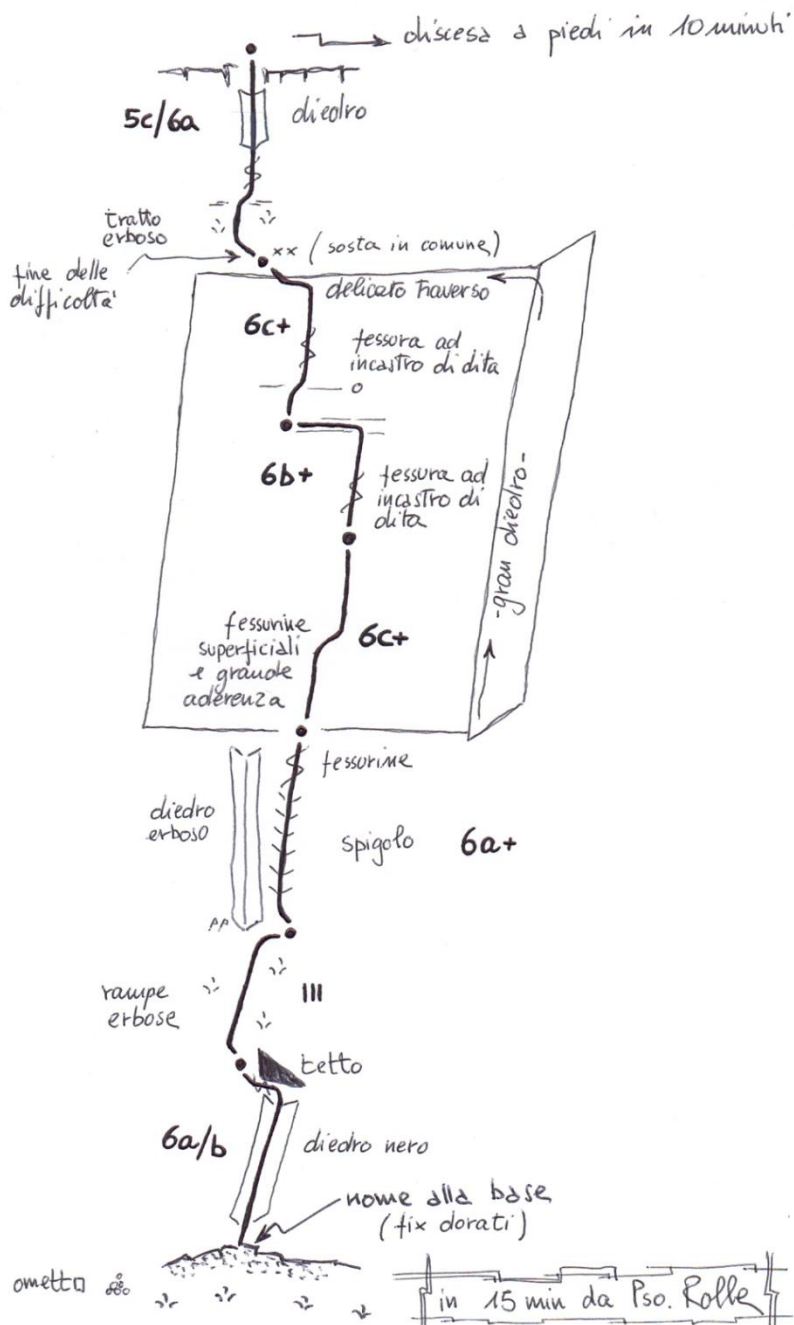 discesa a piedi in 10 minuti
5c/6a
diedro
tratto
erboso
xx (sosta in comune)
fine delle
difficoltà
delicato traverso
6c+
fessura ad
incastro di dita
6b+
fessura ad
incastro di
dita
-gran diedro-
fessurine
superficiali
e grande
aderenza
6c+
fessurine
diedro
erboso
spigolo
6a+
rampe
erbose
III
tetto
6a/b
diedro nero
nome alla base
(fix dorati)
ometto
in 15 min da Pso. Rolle